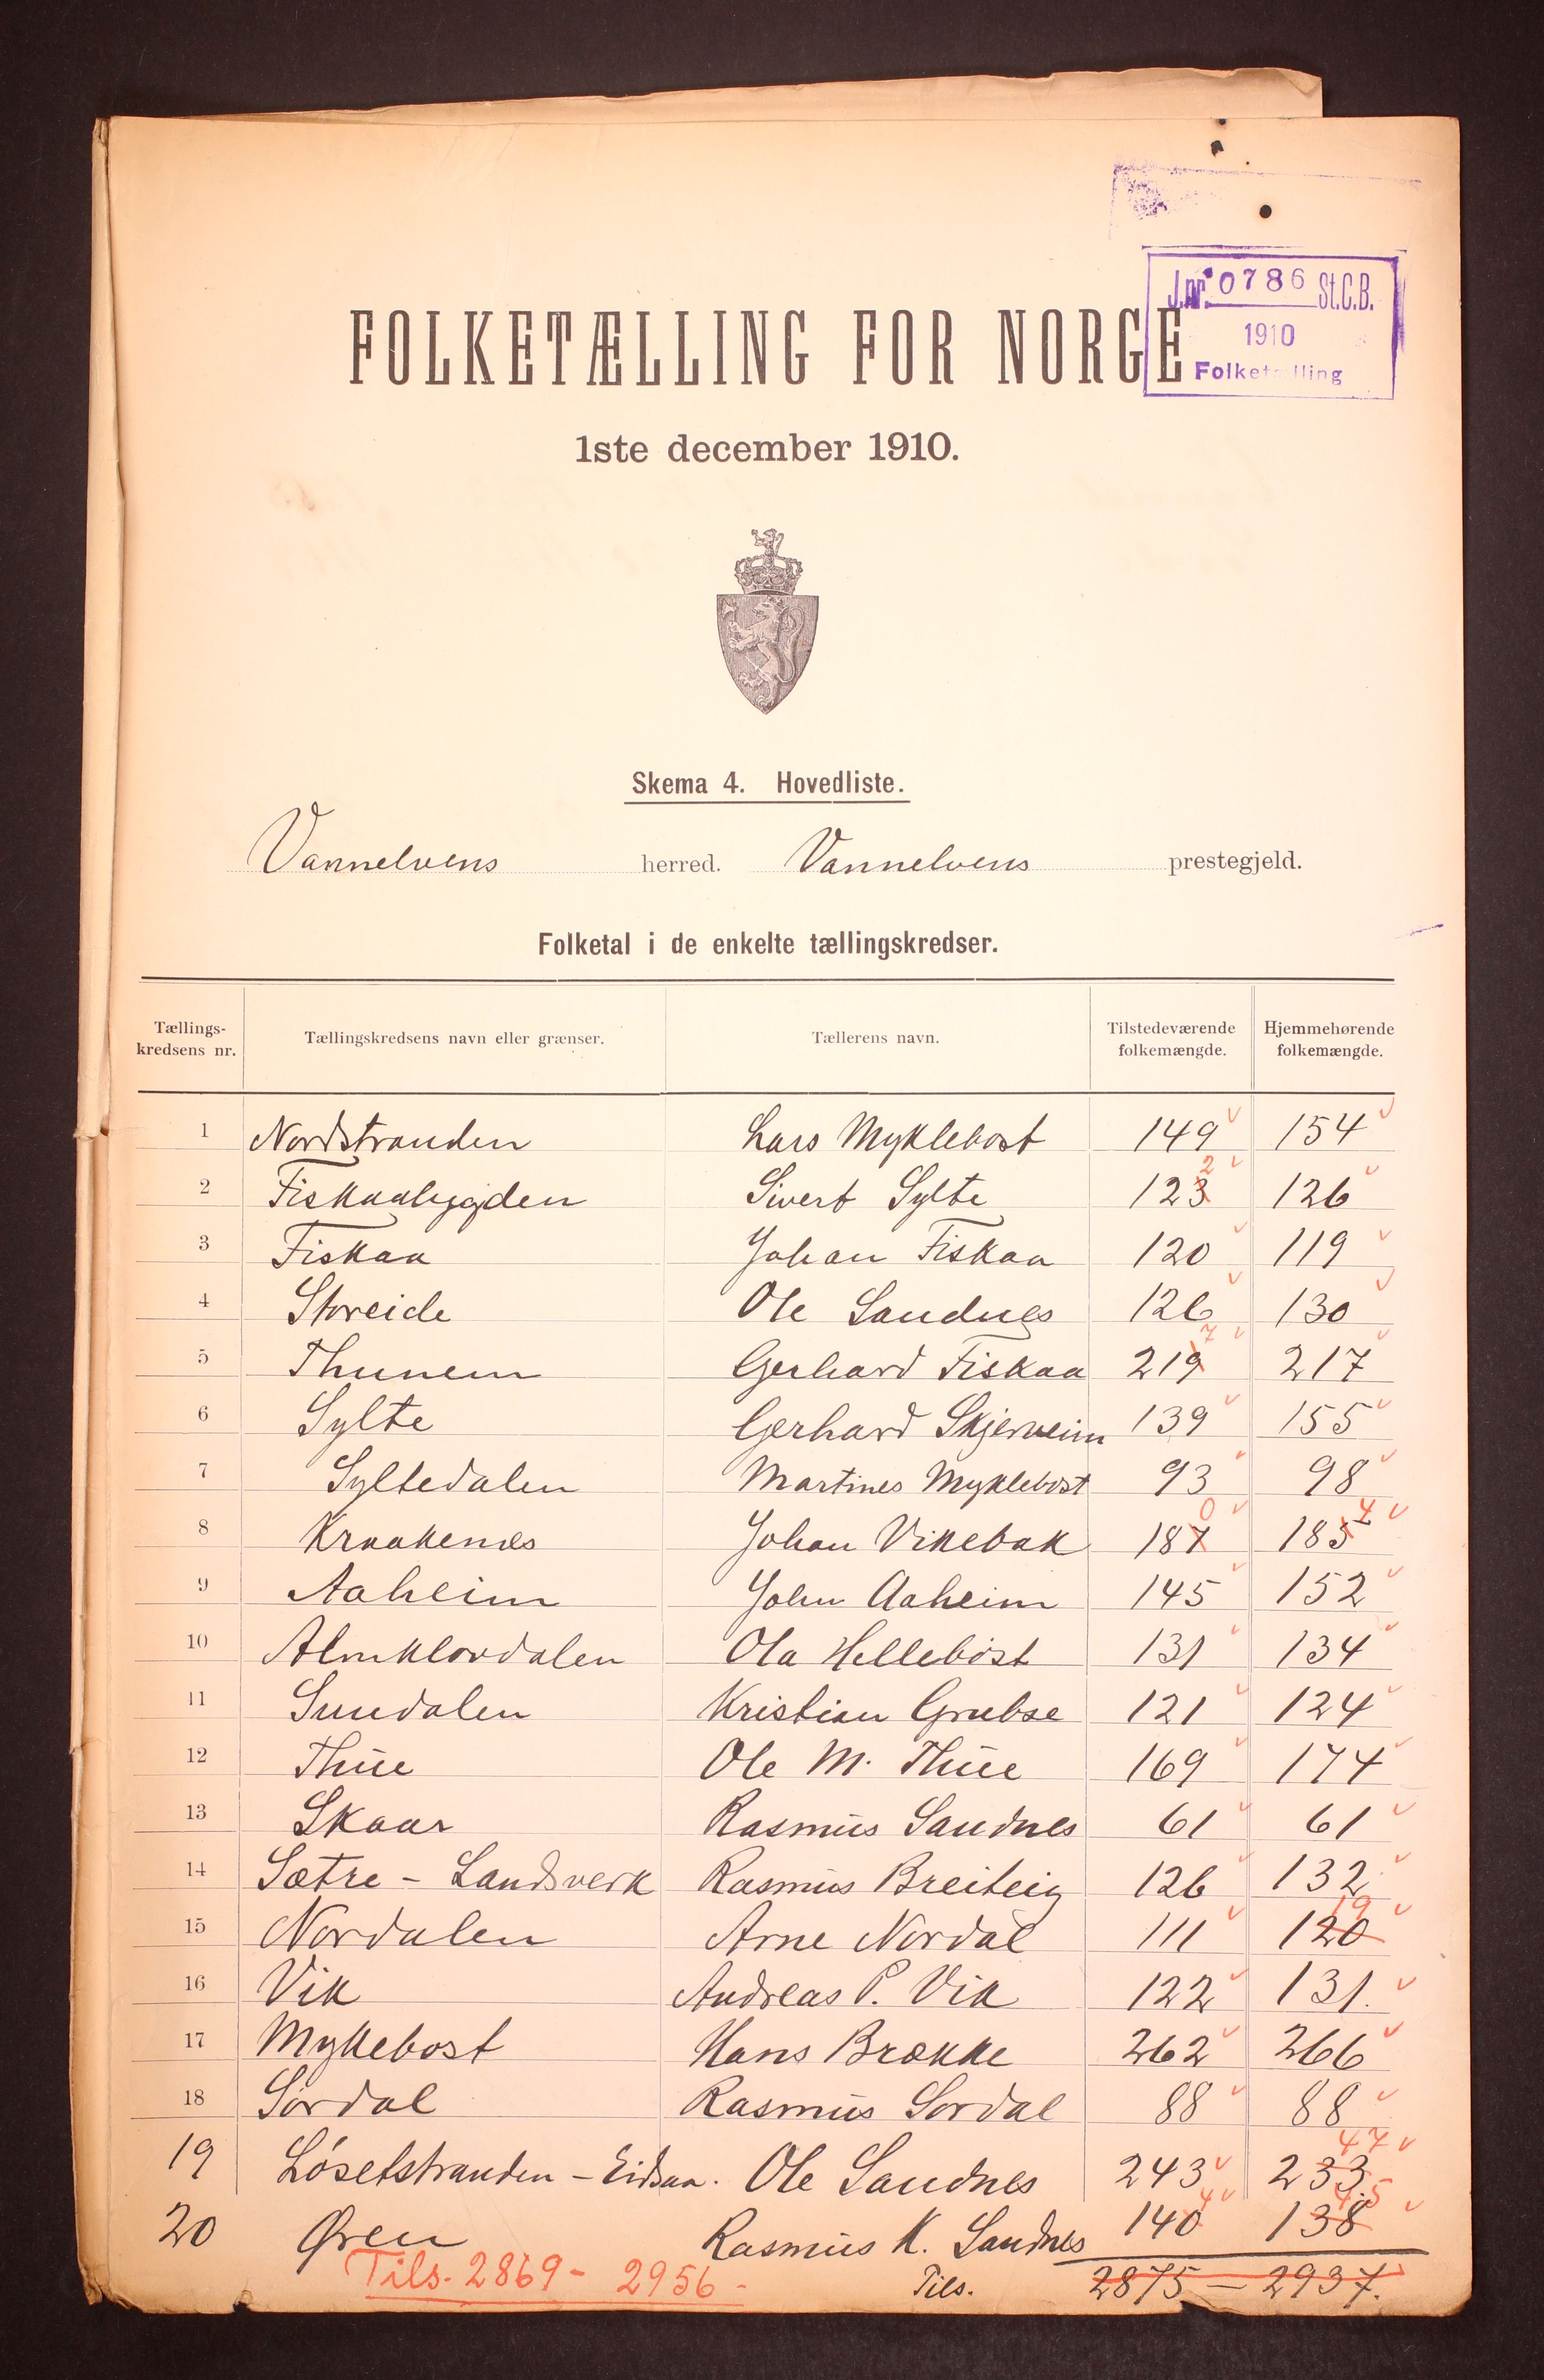 J.nr. 0786 St.C.B.
1910
Folketælling
FOLKETÆLLING FOR NORGE
1ste december 1910.
Skema 4. Hovedliste.
Vannelvens herred. Vannelvens prestegjeld.
Folketal i de enkelte tællingskredser.
Tællings-kredsens nr. Tællingskredsens navn eller grænser. Tællerens navn. Tilstedeværende folkemængde. Hjemmehørende folkemængde.
1 Nordstranden Lars Myklebost 149 154
2 Fiskaabygden Sivert Sylte 123 2 126
3 Fiskaa Johan Fiskaa 120 119
4 Storeide Ole Sandnes 126 130
5 Thunem Gerhard Fiskaa 219 7 217
6 Sylte Gerhard Skjerveim 139 155
7 Syltedalen Martines Myklebost 93 98
8 Kraakenes Johan Vikebak 187 0 185 4
9 Aaheim John Aaheim 145 152
10 Almklovdalen Ola Hellebost 131 134
11 Sundalen Kristian Grubse 121 124
12 Thue Ole M. Thue 169 174
13 Skaar Rasmus Sandnes 61 61
14 Sætre - Landsverk Rasmus Breiteig 126 132
15 Nordalen Arne Nordal 111 120 19
16 Vik Andreas P. Vik 122 131.
17 Mykebost Hans Brække 262 266
18 Sørdal Rasmus Sørdal 88 88
19 Løsetstranden - Eidsaa. Ole Sandnes 243 233 47
20 Øren Rasmus K. Sandnes 140 4 138 45
Tils. 2869 - 2956 -
Tils. 2875 - 2937.